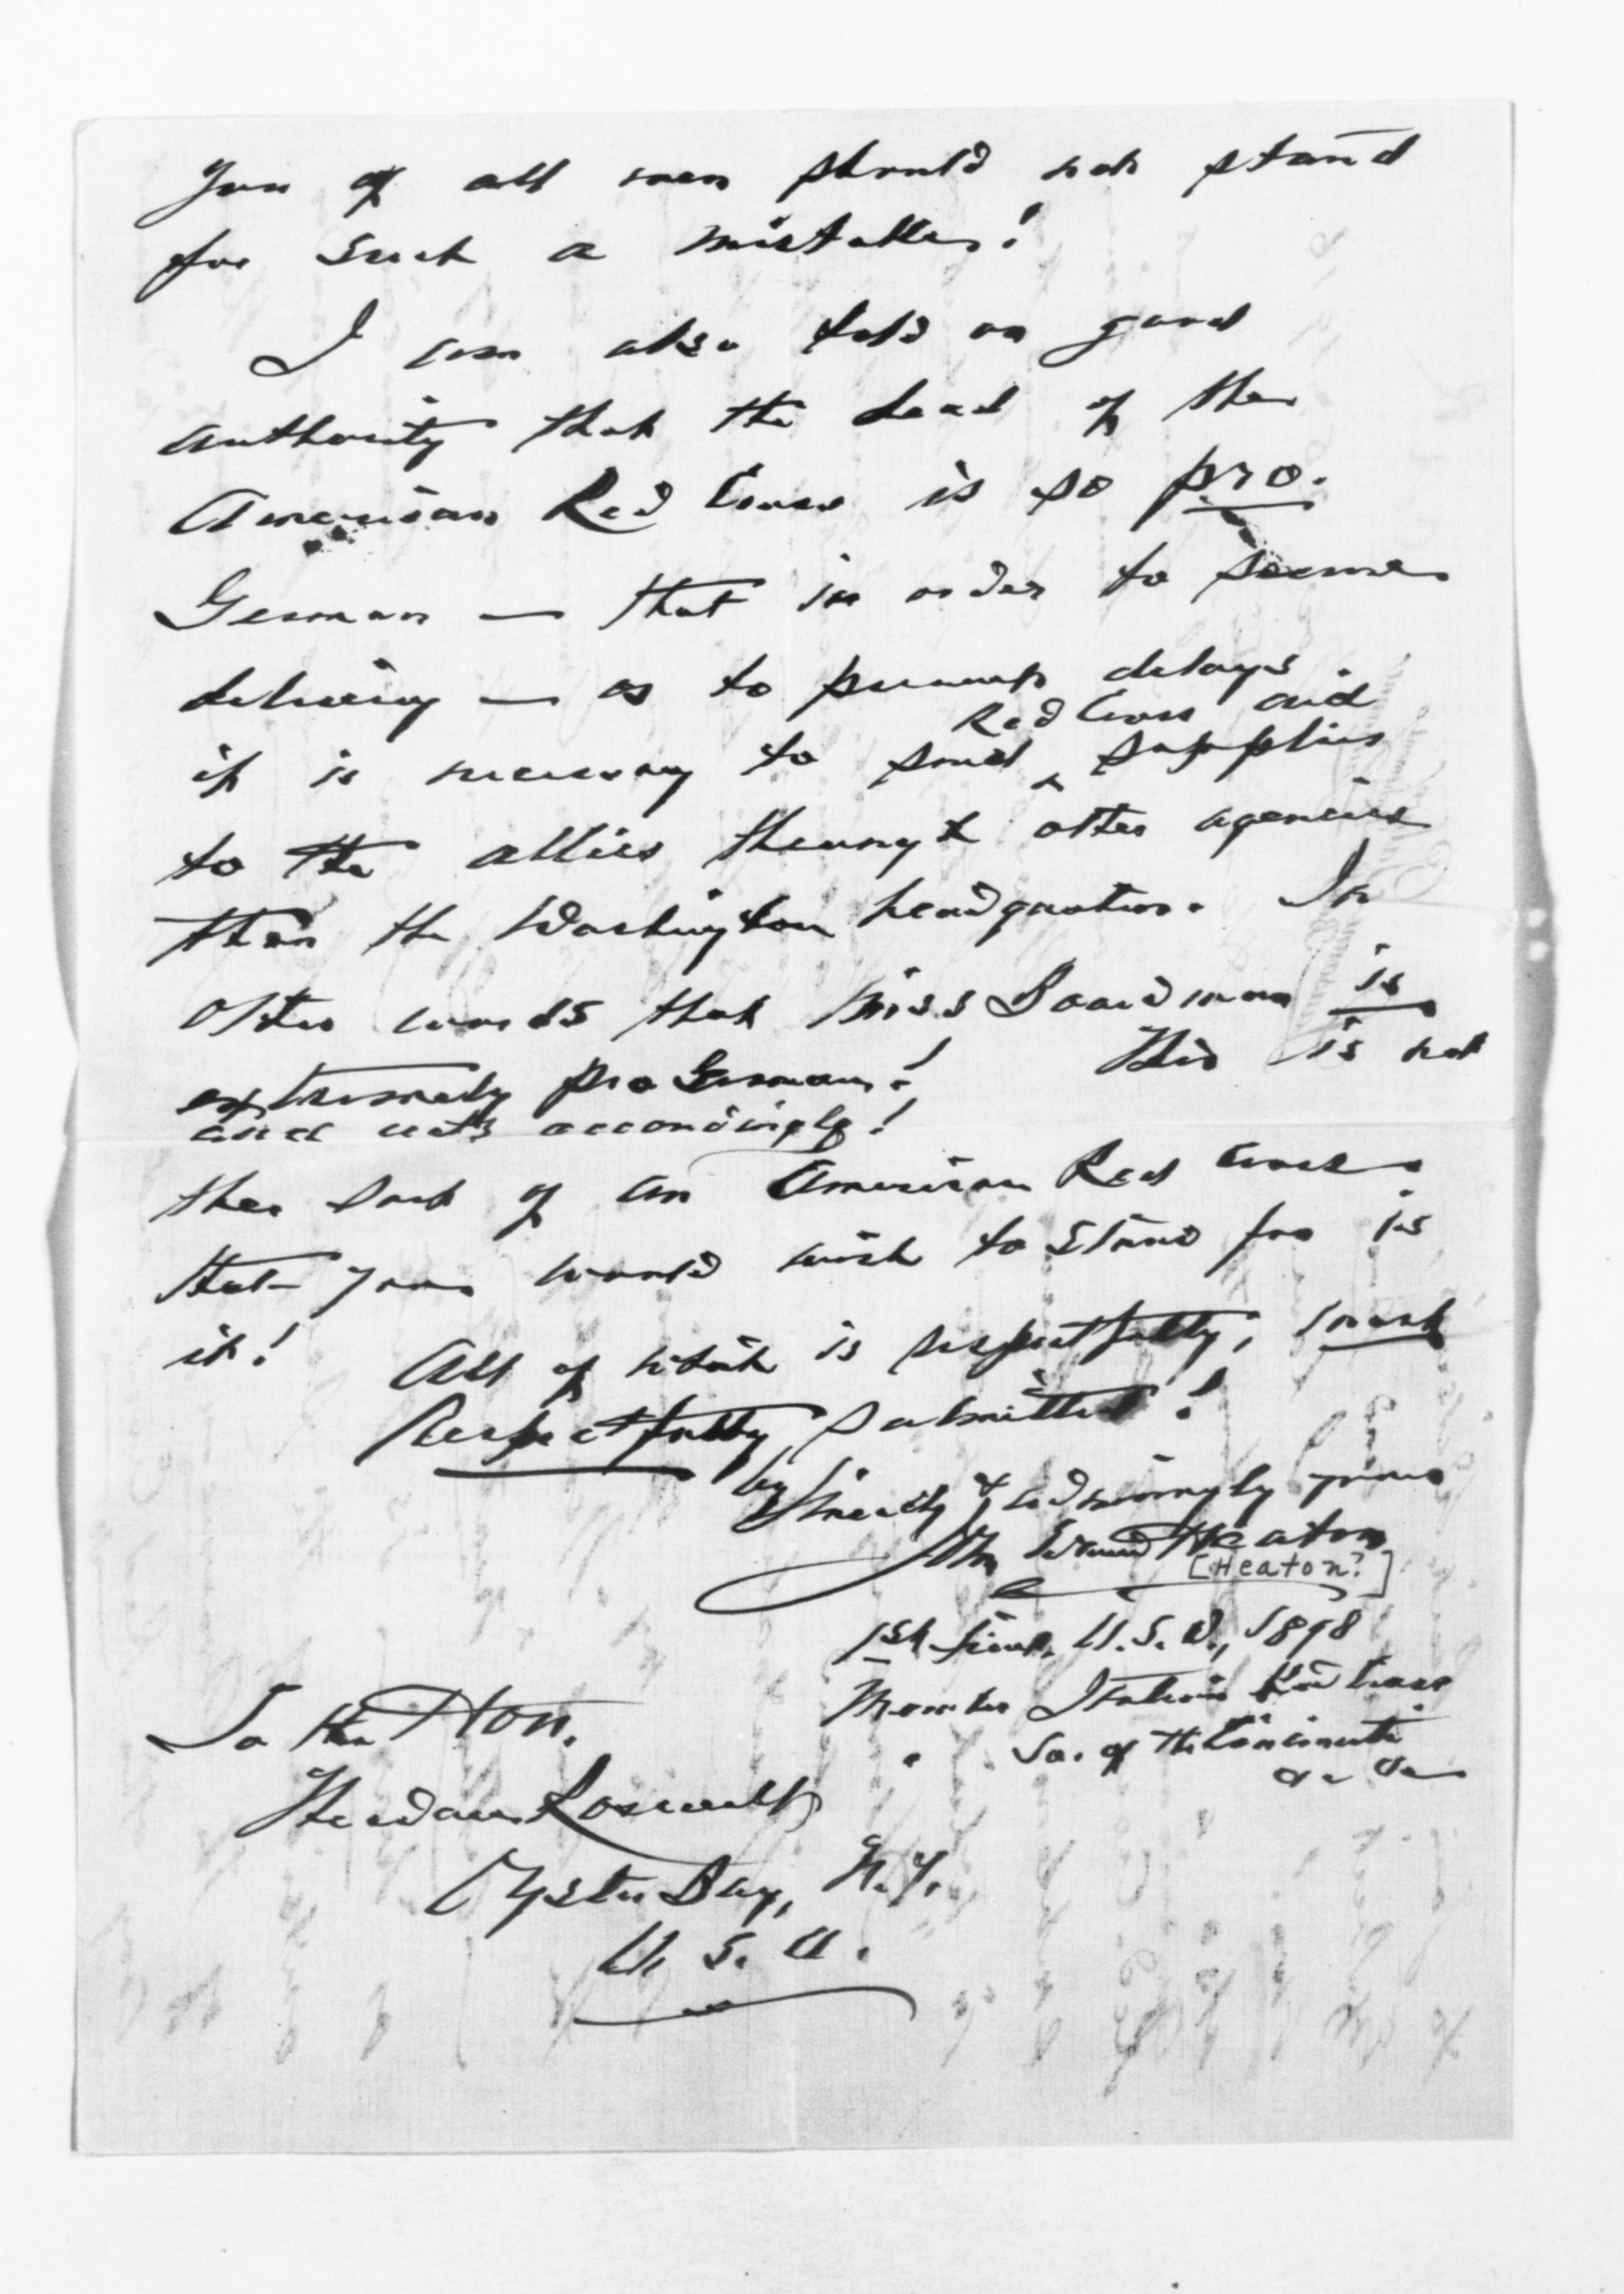 You of all men should not stand
for such a mistake!
I am also told on good
authority that the head of the
American Red Cross is so pro-
German — that in order to secure
delivery — or to prevent delays
it is necessary to send ^ Red Cross aid supplies
to the allies through other agencies
than the Washington headquarters. In
other words that Miss Boardman is
extremely pro German!
and acts accordingly! This is not
the sort of an American Red Cross
that you would wish to stand for is
it!
All of which is respectfully, most
Respectfully submitted!
by Sincerely & admiringly yours
Wm Edward Heaton
[Heaton?]
1st Lieut. U.S.A., 1898
Member Italian Red Cross
" So. of the Cincinnati
To the Hon.
Theodore Roosevelt
Oyster Bay, N.Y.
U. S. A.